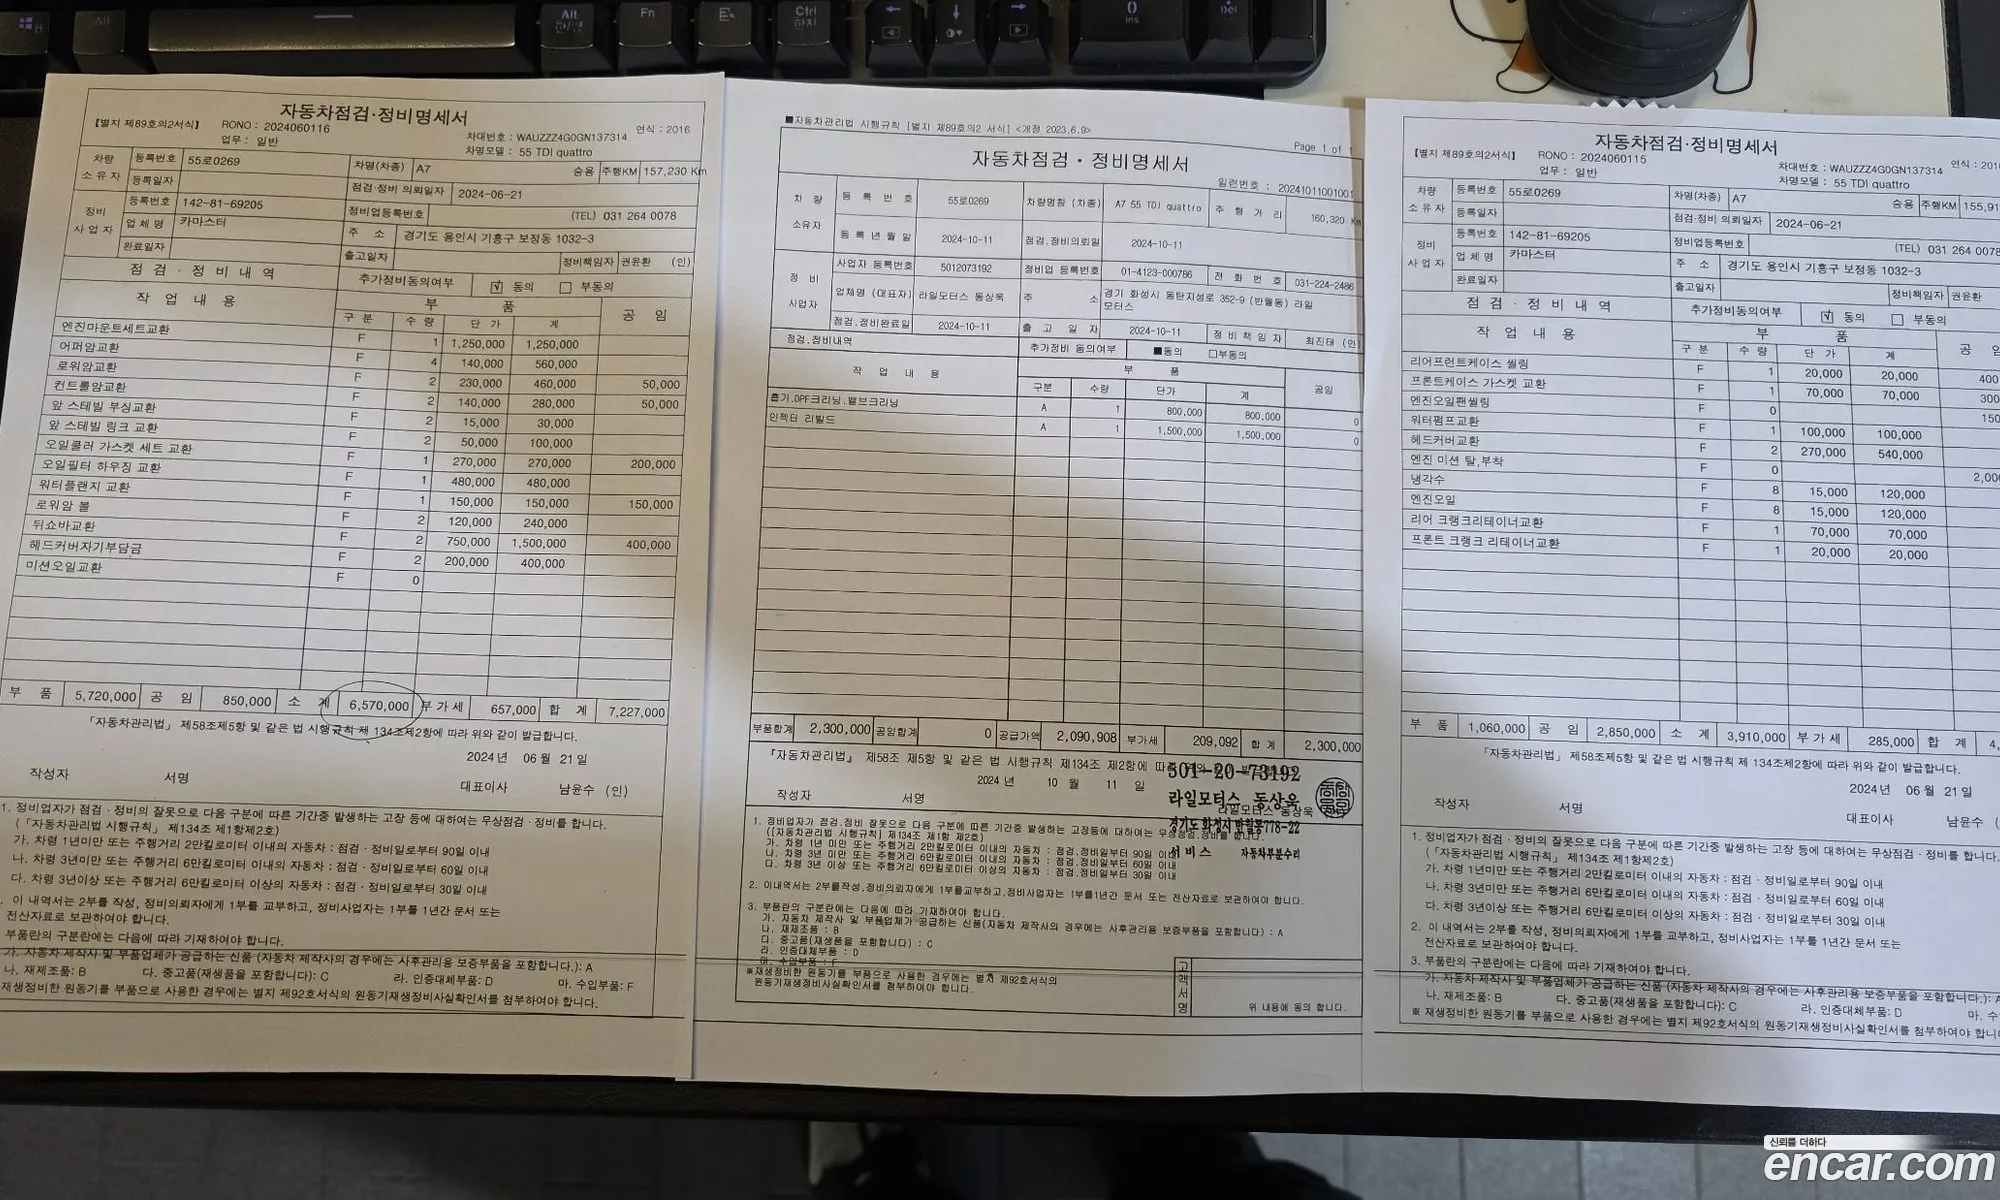 Alt
Alt
한/영
Fn
Ctrl
한자
0
Ins
Del
자동차점검·정비명세서
【별지 제89호의2서식】 RONO : 2024060116
업무 : 일반
차대번호 : WAUZZZ4G0GN137314
연식 : 2016
차명모델 : 55 TDI quattro
차량
소유자
등록번호 55로0269 차명(차종) A7 승용 주행KM 157,230 Km
등록일자 점검·정비 의뢰일자 2024-06-21
정비
사업자
등록번호 142-81-69205 정비업등록번호 (TEL) 031 264 0078
업체명 카마스터 주 소 경기도 용인시 기흥구 보정동 1032-3
완료일자 출고일자 정비책임자 권윤환 (인)
점검·정비내역 추가정비동의여부 ☑ 동의 □ 부동의
작업내용 부 품 공 임
구분 수량 단가 계
엔진마운트세트교환 F 1 1,250,000 1,250,000
어퍼암교환 F 4 140,000 560,000
로워암교환 F 2 230,000 460,000 50,000
컨트롤암교환 F 2 140,000 280,000 50,000
앞 스테빌 부싱교환 F 2 15,000 30,000
앞 스테빌 링크 교환 F 2 50,000 100,000
오일쿨러 가스켓 세트 교환 F 1 270,000 270,000 200,000
오일필터 하우징 교환 F 1 480,000 480,000
워터플랜지 교환 F 1 150,000 150,000 150,000
로워암 볼 F 2 120,000 240,000
뒤쇼바교환 F 2 750,000 1,500,000 400,000
헤드커버자기부담금 F 2 200,000 400,000
미션오일교환 F 0
부 품 5,720,000 공 임 850,000 소 계 6,570,000 부가세 657,000 합 계 7,227,000
「자동차관리법」 제58조제5항 및 같은 법 시행규칙 제 134조제2항에 따라 위와 같이 발급합니다.
2024년 06월 21일
작성자 서명 대표이사 남윤수 (인)
1. 정비업자가 점검·정비의 잘못으로 다음 구분에 따른 기간중 발생하는 고장 등에 대하여는 무상점검·정비를 합니다.
(「자동차관리법 시행규칙」 제134조 제1항제2호)
가. 차령 1년미만 또는 주행거리 2만킬로미터 이내의 자동차 : 점검·정비일로부터 90일 이내
나. 차령 3년미만 또는 주행거리 6만킬로미터 이내의 자동차 : 점검·정비일로부터 60일 이내
다. 차령 3년이상 또는 주행거리 6만킬로미터 이상의 자동차 : 점검·정비일로부터 30일 이내
. 이 내역서는 2부를 작성, 정비의뢰자에게 1부를 교부하고, 정비사업자는 1부를 1년간 문서 또는
전산자료로 보관하여야 합니다.
부품란의 구분란에는 다음에 따라 기재하여야 합니다.
가. 자동차 제작사 및 부품업체가 공급하는 신품 (자동차 제작사의 경우에는 사후관리용 보증부품을 포함합니다.): A
나. 재제조품: B 다. 중고품(재생품을 포함합니다): C 라. 인증대체부품: D 마. 수입부품: F
재생정비한 원동기를 부품으로 사용한 경우에는 별지 제92호서식의 원동기재생정비사실확인서를 첨부하여야 합니다.
■자동차관리법 시행규칙 [별지 제89호의2 서식] <개정 2023.6.9>
Page 1 of 1
자동차점검·정비명세서
일련번호 : 20241011001001
차 량
소유자
등록번호 55로0269 차량명칭 (차종) A7 55 TDI quattro 주행거리 160,320 Km
등록년월일 2024-10-11 점검.정비의뢰일 2024-10-11
정 비
사업자
사업자 등록번호 5012073192 정비업 등록번호 01-4123-000786 전화번호 031-224-2486
업체명 (대표자) 라일모터스 동상욱 주 소 경기 화성시 동탄지성로 352-9 (반월동) 라일
모터스
점검.정비완료일 2024-10-11 출고일자 2024-10-11 정비책임자 최진태 (인)
점검.정비내역 추가정비 동의여부 ■동의 □부동의
작업내용 부 품 공임
구분 수량 단가 계
흡기.DPF크리닝.밸브크리닝 A 1 800,000 800,000 0
인젝터 리빌드 A 1 1,500,000 1,500,000 0
부품합계 2,300,000 공임합계 0 공급가액 2,090,908 부가세 209,092 합 계 2,300,000
『자동차관리법』 제58조 제5항 및 같은 법 시행규칙 제134조 제2항에 따
2024 년 10 월 11 일
501-20-73192
라일모터스 동상욱
경기도 화성시 반월동778-22
서비스 자동차부분수리
작성자 서명 라일모터스 동상욱
1. 정비업자가 점검.정비 잘못으로 다음 구분에 따른 기간중 발생하는 고장등에 대하여는 무상점검.정비를 합니다.
([자동차관리법 시행규칙] 제134조 제1항 제2호)
가. 차령 1년 미만 또는 주행거리 2만킬로미터 이내의 자동차 : 점검.정비일부터 90일 이내
나. 차령 3년 미만 또는 주행거리 6만킬로미터 이내의 자동차 : 점검.정비일부터 60일 이내
다. 차령 3년 이상 또는 주행거리 6만킬로미터 이상의 자동차 : 점검.정비일부터 30일 이내
2. 이내역서는 2부를작성,정비의뢰자에게 1부를교부하고,정비사업자는 1부를1년간 문서 또는 전산자료로 보관하여야 합니다.
3. 부품란의 구분란에는 다음에 따라 기재하여야 합니다.
가. 자동차 제작사 및 부품업체가 공급하는 신품(자동차 제작사의 경우에는 사후관리용 보증부품을 포함합니다) : A
나. 재제조품 : B
다. 중고품(재생품을 포함합니다) : C
라. 인증대체부품 : D
마. 수입부품 : F
※재생정비한 원동기를 부품으로 사용한 경우에는 별지 제92호서식의
원동기재생정비사실확인서를 첨부하여야 합니다.
고객서명
위 내용에 동의 합니다.
자동차점검·정비명세서
【별지 제89호의2서식】 RONO : 2024060115
업무 : 일반
차대번호 : WAUZZZ4G0GN137314
연식 : 2016
차명모델 : 55 TDI quattro
차량
소유자
등록번호 55로0269 차명(차종) A7 승용 주행KM 155,91
등록일자 점검·정비 의뢰일자 2024-06-21
정비
사업자
등록번호 142-81-69205 정비업등록번호 (TEL) 031 264 0078
업체명 카마스터 주 소 경기도 용인시 기흥구 보정동 1032-3
완료일자 출고일자 정비책임자 권윤환
점검·정비내역 추가정비동의여부 ☑ 동의 □ 부동의
작업내용 부 품 공
구분 수량 단가 계
리어프런트케이스 씰링 F 1 20,000 20,000 400
프론트케이스 가스켓 교환 F 1 70,000 70,000 300
엔진오일팬씰링 F 0 150
워터펌프교환 F 1 100,000 100,000
헤드커버교환 F 2 270,000 540,000
엔진 미션 탈,부착 F 0 2,00
냉각수 F 8 15,000 120,000
엔진오일 F 8 15,000 120,000
리어 크랭크리테이너교환 F 1 70,000 70,000
프론트 크랭크 리테이너교환 F 1 20,000 20,000
부 품 1,060,000 공 임 2,850,000 소 계 3,910,000 부가세 285,000 합 계 4,
「자동차관리법」 제58조제5항 및 같은 법 시행규칙 제 134조제2항에 따라 위와 같이 발급합니다.
2024년 06월 21일
작성자 서명 대표이사 남윤수 (
1. 정비업자가 점검·정비의 잘못으로 다음 구분에 따른 기간중 발생하는 고장 등에 대하여는 무상점검·정비를 합니다.
(「자동차관리법 시행규칙」 제134조 제1항제2호)
가. 차령 1년미만 또는 주행거리 2만킬로미터 이내의 자동차 : 점검·정비일로부터 90일 이내
나. 차령 3년미만 또는 주행거리 6만킬로미터 이내의 자동차 : 점검·정비일로부터 60일 이내
다. 차령 3년이상 또는 주행거리 6만킬로미터 이상의 자동차 : 점검·정비일로부터 30일 이내
2. 이 내역서는 2부를 작성, 정비의뢰자에게 1부를 교부하고, 정비사업자는 1부를 1년간 문서 또는
전산자료로 보관하여야 합니다.
3. 부품란의 구분란에는 다음에 따라 기재하여야 합니다.
가. 자동차 제작사 및 부품업체가 공급하는 신품 (자동차 제작사의 경우에는 사후관리용 보증부품을 포함합니다.): A
나. 재제조품: B 다. 중고품(재생품을 포함합니다): C 라. 인증대체부품: D 마. 수
※ 재생정비한 원동기를 부품으로 사용한 경우에는 별지 제92호서식의 원동기재생정비사실확인서를 첨부하여야 합니
신뢰를 더하다
encar.com